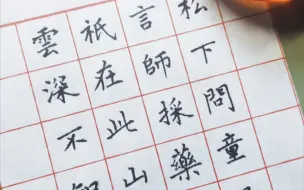 松下問童
言師採藥
祇在此山
雲深不知